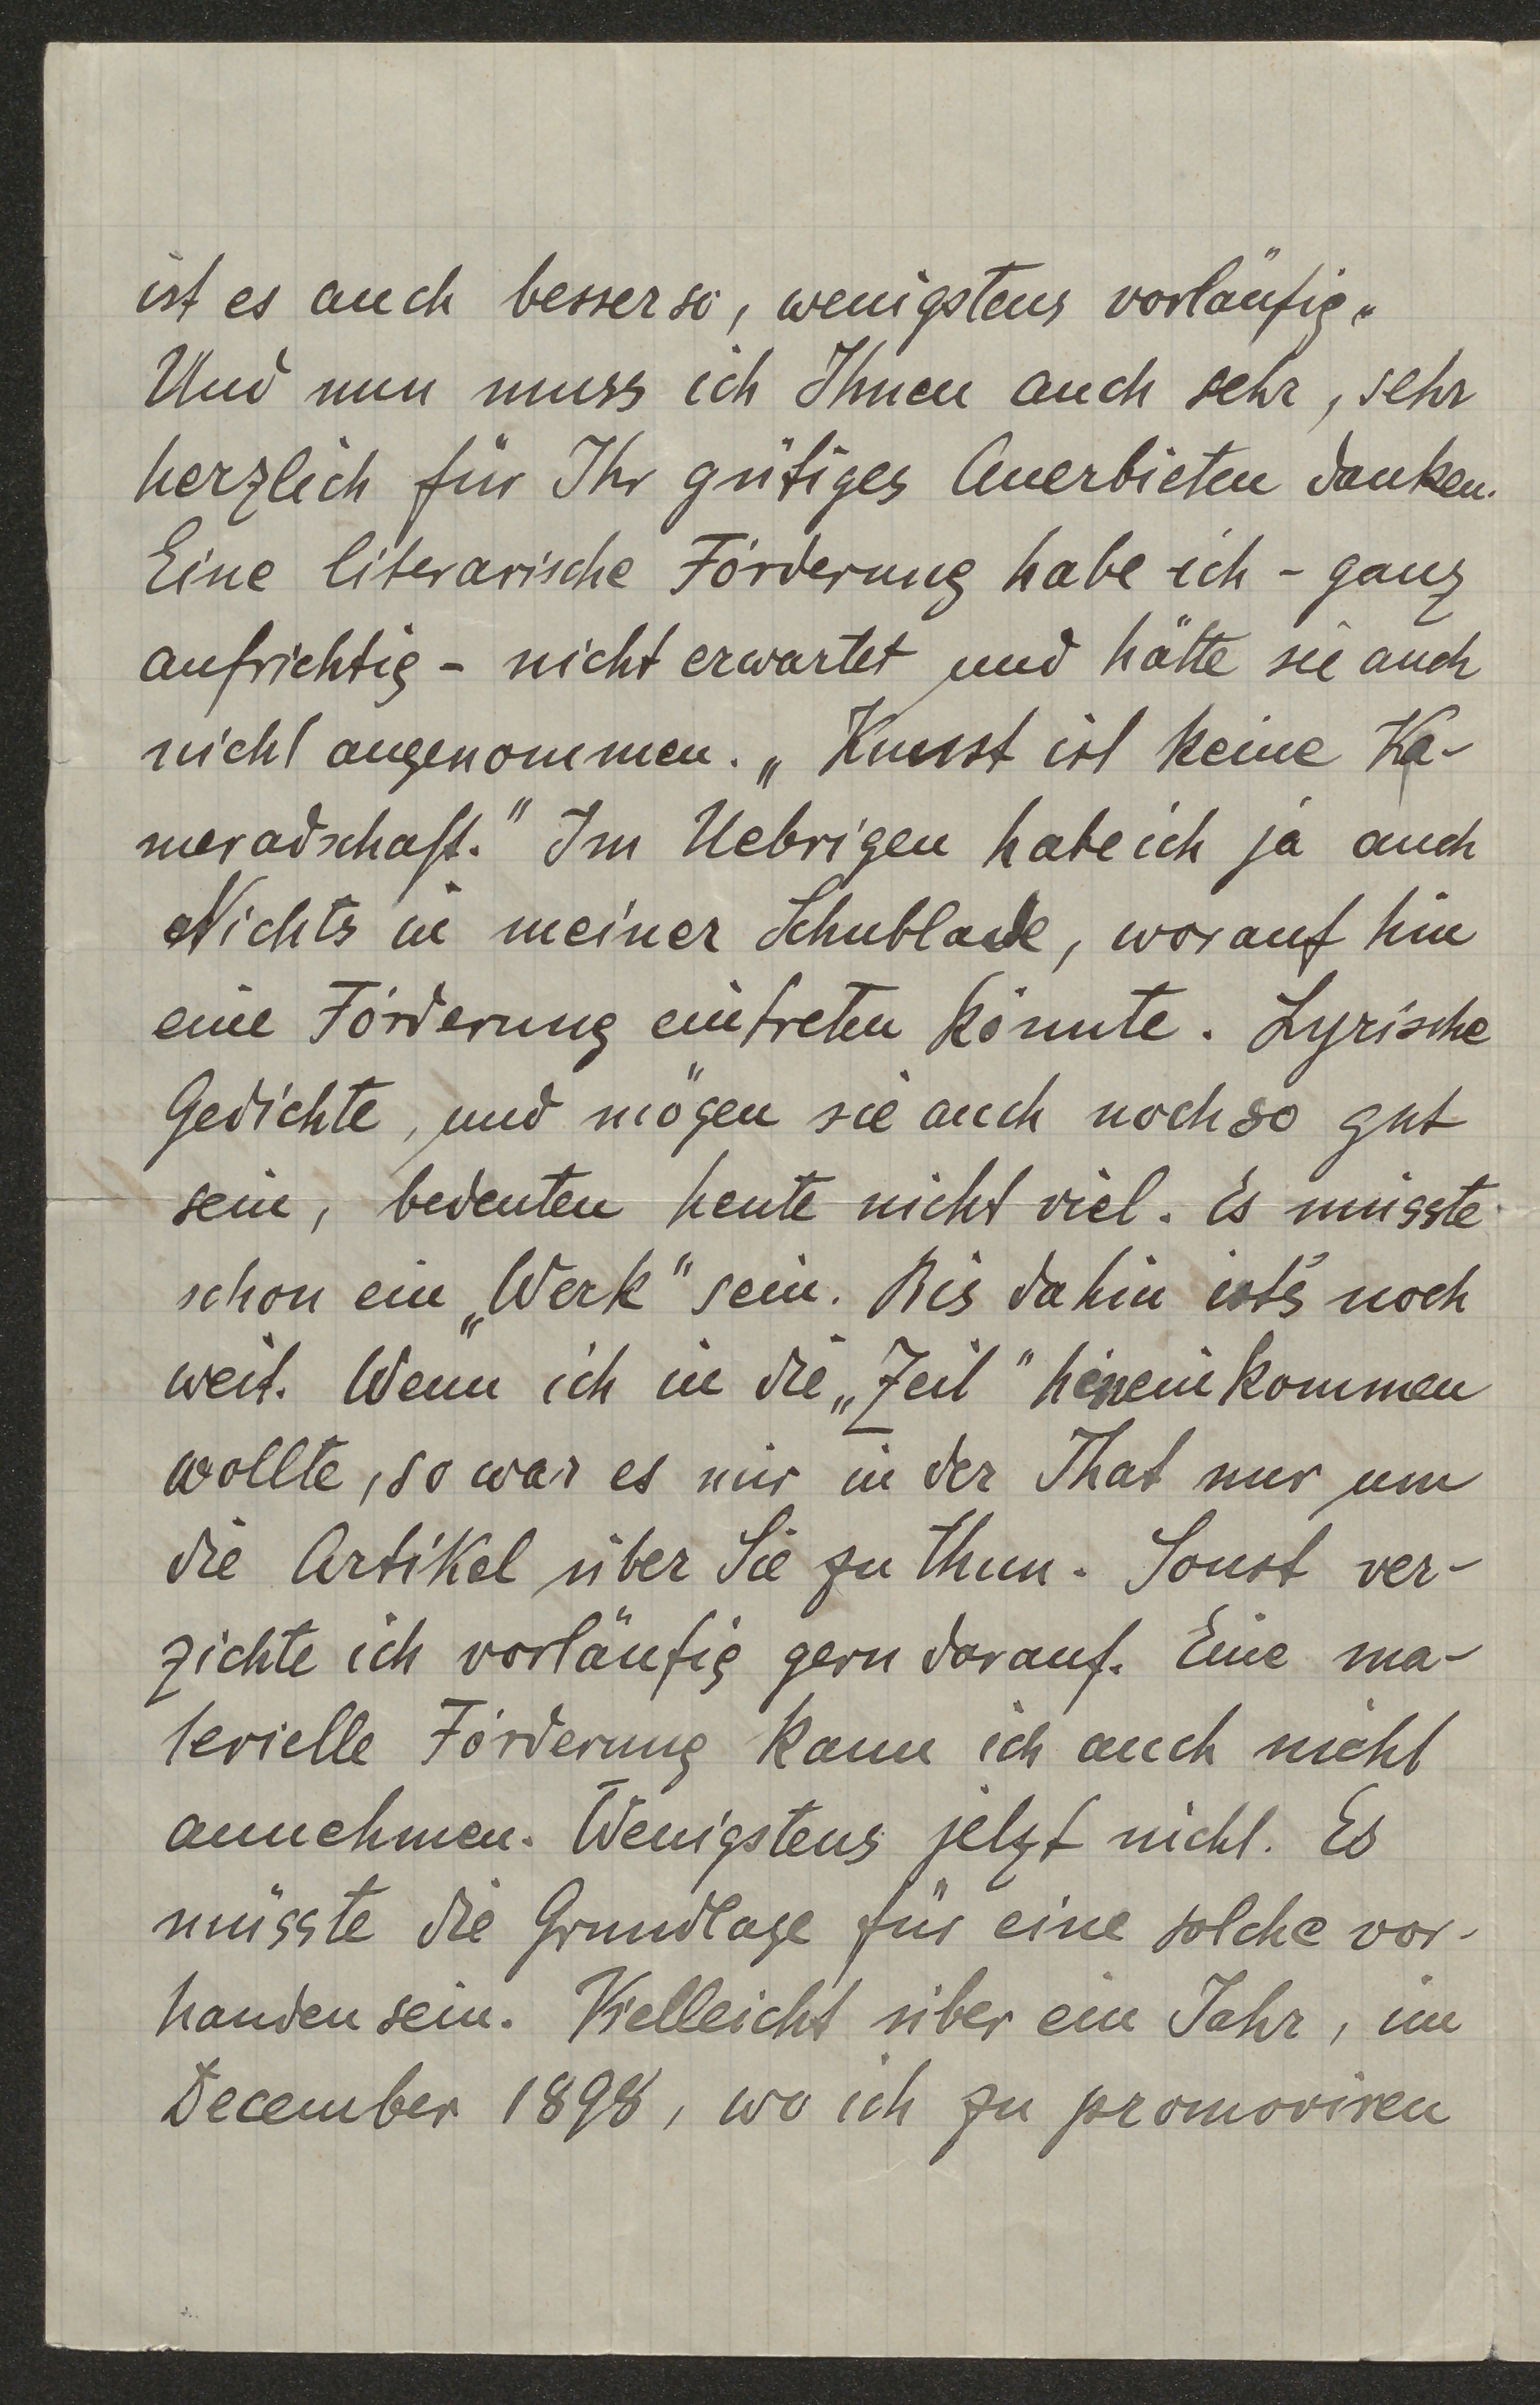 ist es auch besser so, wenigstens vorläufig.
Und nun muss ich Ihnen auch sehr, sehr
herzlich für Ihr gütiges Anerbieten danken.
Eine literarische Förderung habe ich - ganz
aufrichtig - nicht erwartet und hätte sie auch
nicht angenommen. „Kunst ist keine Ka-
meradschaft.“ Im Uebrigen habe ich ja auch
Nichts in meiner Schublade, worauf hin
eine Förderung eintreten könnte. Lyrische
Gedichte, und mögen sie auch noch so gut
sein, bedeuten heute nicht viel. Es müsste
schon ein „Werk“ sein. Bis dahin ist's noch
weit. Wenn ich in die „Zeit“ hineinkommen
wollte, so war es mir in der That nur um
die Artikel über Sie zu thun. Sonst ver-
zichte ich vorläufig gern darauf. Eine ma-
terielle Förderung kann ich auch nicht
annehmen. Wenigstens jetzt nicht. Es
müsste die Grundlage für eine solche vor-
handen sein. Vielleicht über ein Jahr, im
December 1898, wo ich zu promoviren